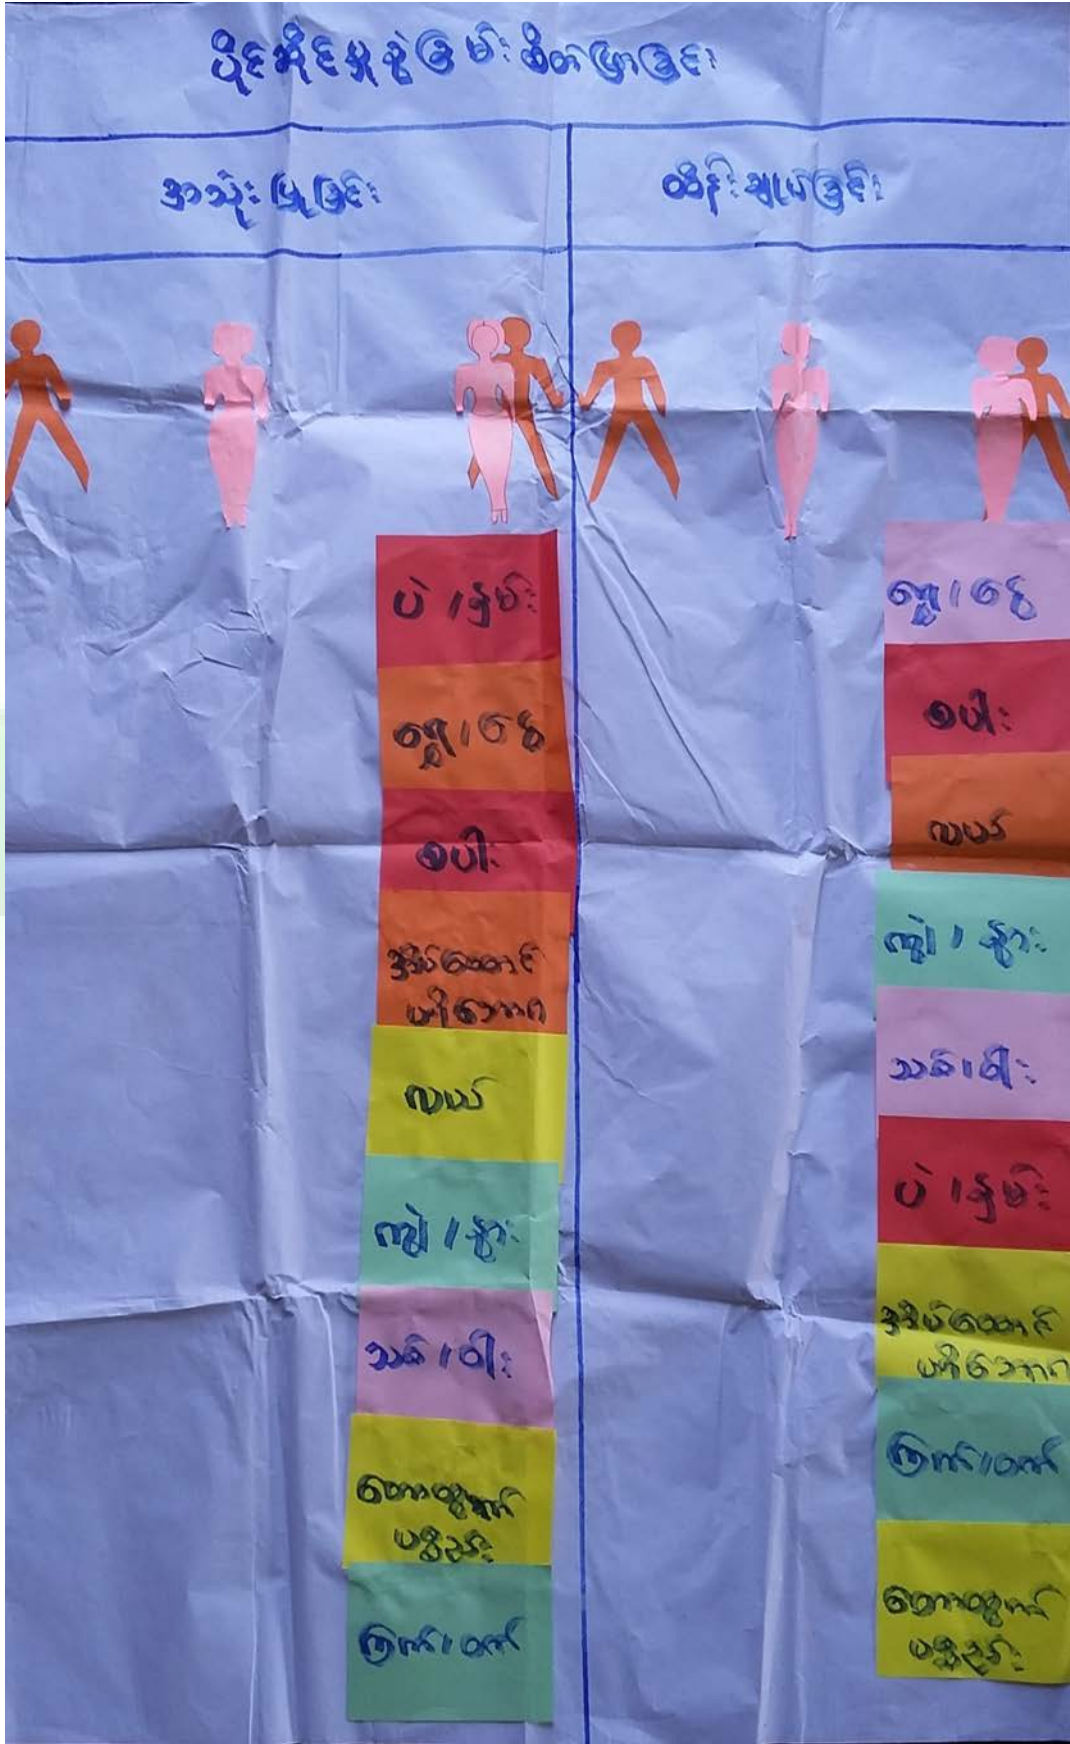 ပိုင်ဆိုင်မှုခွဲခြမ်းစိတ်ဖြာခြင်း
အသုံးပြုခြင်း
ထိန်းချုပ်ခြင်း
ပဲ/နှမ်း
ရွှေ/ငွေ
စပါး
အိမ်ထောင်
ပရိဘောဂ
လယ်
ကျွဲ/နွား
သစ်/ဝါး
တောထွက်
ပစ္စည်း
ကြက်/ဝက်
ရွှေ/ငွေ
စပါး
လယ်
ကျွဲ/နွား
သစ်/ဝါး
ပဲ/နှမ်း
အိမ်ထောင်
ပရိဘောဂ
ကြက်/ဝက်
တောထွက်
ပစ္စည်း